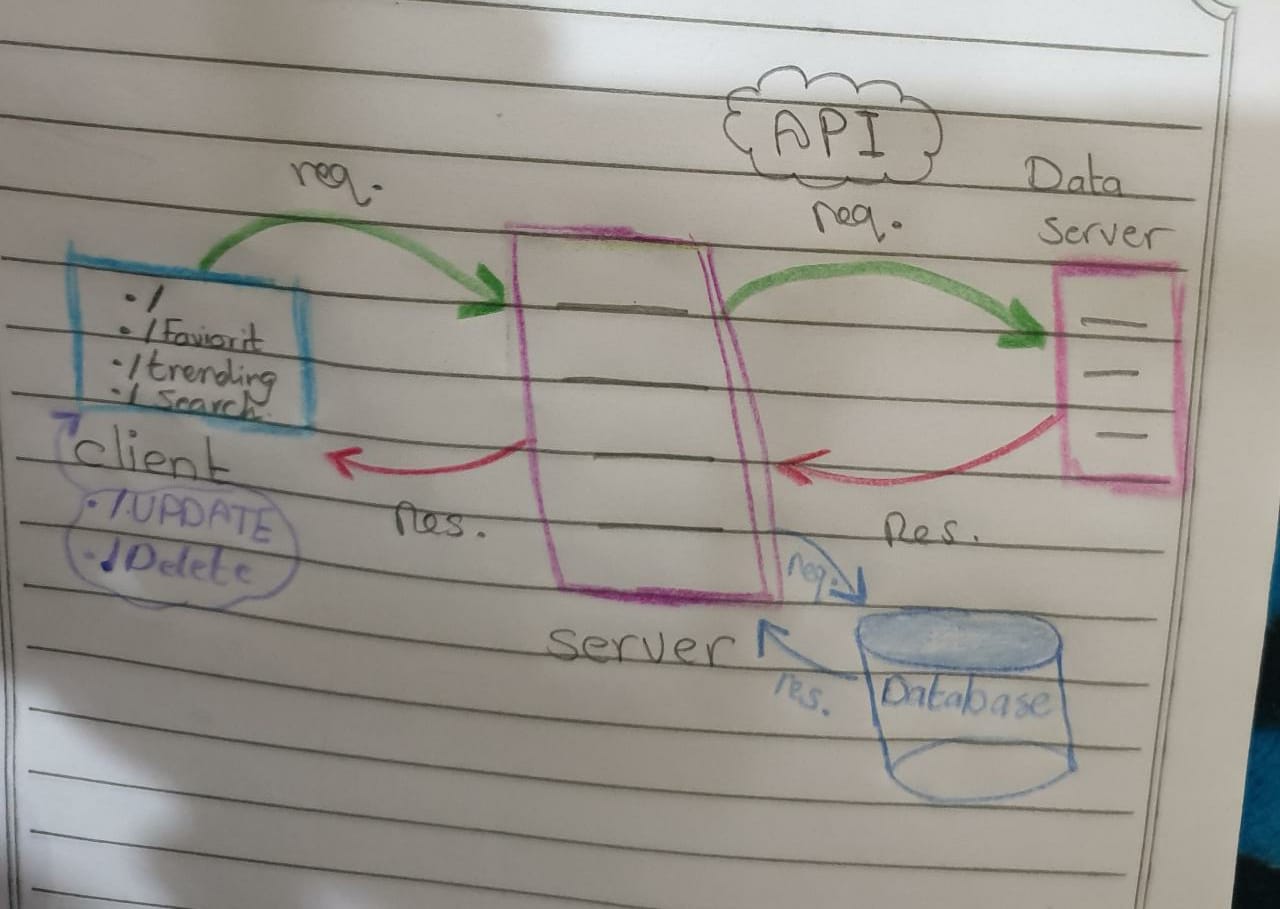 API
req.
req.
Data
Server
• /
• /Faviorit
• /trending
• /Search.
client
• /UPDATE
• /Delete
Res.
Res.
req.
server
res.
Database